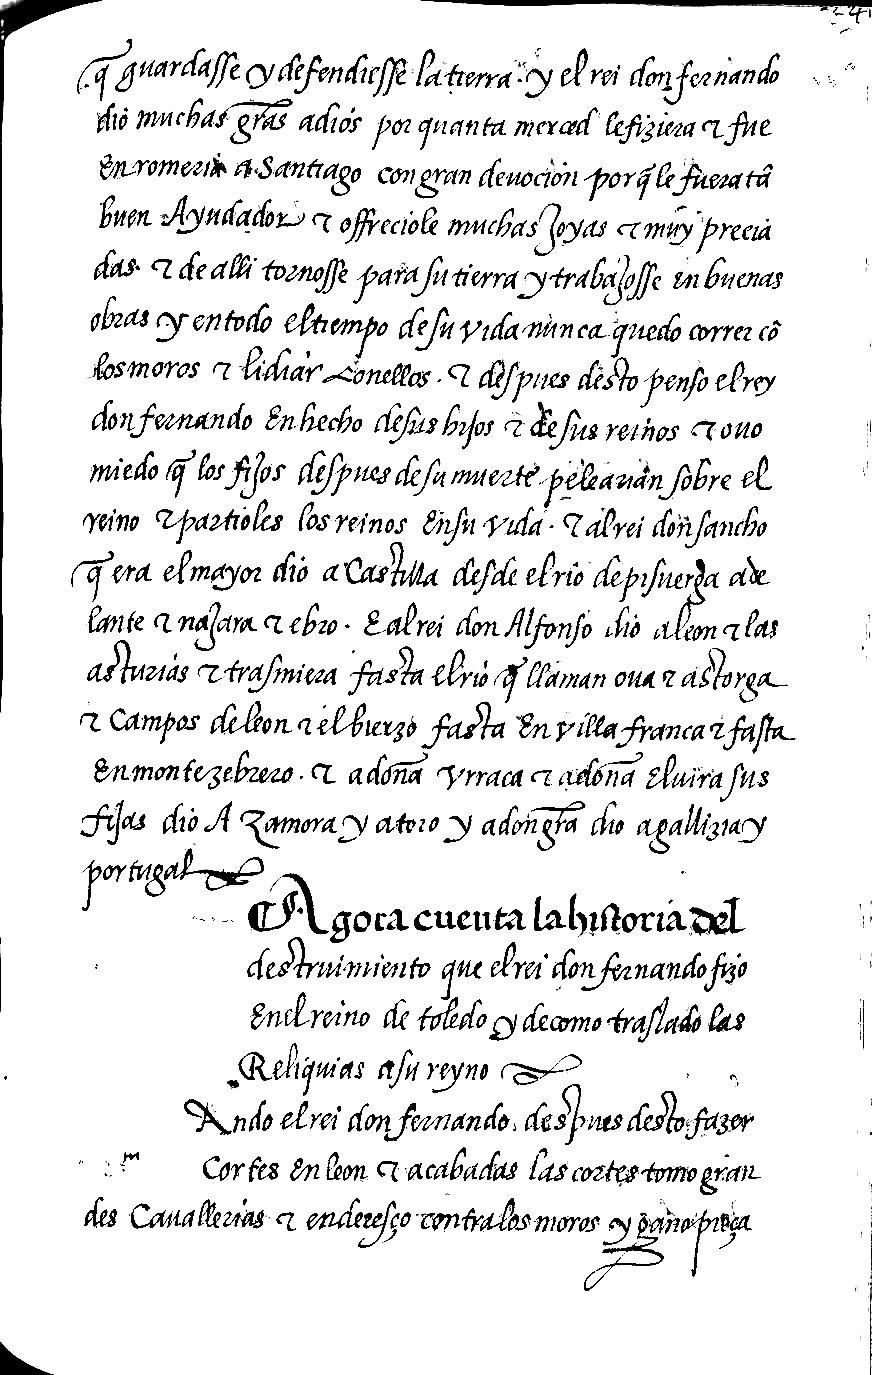 241
q̃ guardasse y defendiesse la tierra · y el rei don fernando
dió muchas gr̃as adiós por quanta merced le fiziera ⁊ fue
En romeria a Santiago con gran devoción por q̃ le fuera tã
buen Ayudador ⁊ offreciole muchas Joyas ⁊ muy precia
das · ⁊ de alli tornosse para su tierra y trabaJosse en buenas
obras y en todo el tiempo de su vida nunca quedo correr cõ
los moros ⁊ lidiár Conellos · ⁊ despues desto penso el rey
don fernando En hecho de sus hijos ⁊ de sus reinos ⁊ ouo
miedo q̃ los fiJos despues de su muerte pelearian sobre el
reino ⁊ partioles los reinos En su vida · ⁊ al rei don sancho
q̃ era el mayor dió a Castilla desde el rio de pisuerga ade
lante ⁊ naJara ⁊ ebro · E al rei don Alfonso dio a leon ⁊ las
asturiás ⁊ trasmiera fasta el rió q̃ llaman oua ⁊ astorga
⁊ Campos de leon ⁊ el bierzo fasta En villa franca ⁊ fasta
En monte zebrero · ⁊ a doña Vrraca ⁊ a doña Eluira sus
fiJas dio A Zamora y a toro y a don gr̃a dio a gallizia y
portugal
¶ Agora cuenta la historia del
destruimiento que el rei don fernando fizo
En el reino de toledo y de como traslado las
Reliquias a su reyno
Ando el rei don fernando despues desto fazer
Cortes En leon ⁊ acabadas las cortes tomo gran
des Cauallerias ⁊ enderesço contra los moros y gano pieça